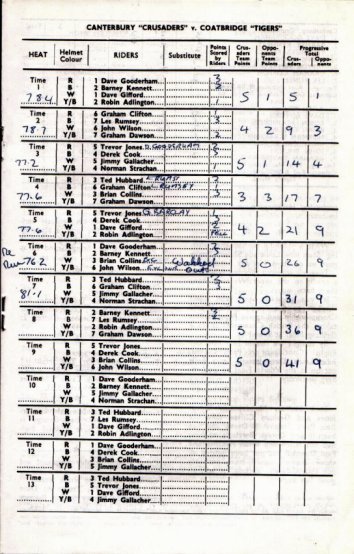 CANTERBURY "CRUSADERS" v. COATBRIDGE "TIGERS"
HEAT Helmet Colour RIDERS Substitute Points Scored by Riders Crusaders Team Points Opponents Team Points Progressive Total Crusaders Opponents
Time R 1 Dave Gooderham 3
1 B 2 Barney Kennett 2
W 1 Dave Gifford
78.4 Y/B 2 Robin Adlington 1 5 1 5 1
Time R 6 Graham Clifton
2 B 7 Les Rumsey 3
W 6 John Wilson
78.7 Y/B 7 Graham Dawson 2 4 2 9 3
Time R 5 Trevor Jones D. GOODERHAM
3 B 4 Derek Cook
W 5 Jimmy Gallacher
77.2 Y/B 4 Norman Strachan 5 1 14 4
Time R 3 Ted Hubbard
4 B 6 Graham Clifton L RUMSEY
W 3 Brian Collins
77.6 Y/B 7 Graham Dawson 3 3 17 7
Time R 5 Trevor Jones G. BARCLAY
5 B 4 Derek Cook
W 1 Dave Gifford
77.6 Y/B 2 Robin Adlington 4 2 21 9
Time R 1 Dave Gooderham
6 B 2 Barney Kennett
W 3 Brian Collins Exc Walked
Re Run 76.2 Y/B 6 John Wilson Out 5 0 26 9
Time R 3 Ted Hubbard
7 B 6 Graham Clifton
W 5 Jimmy Gallacher
81.1 Y/B 4 Norman Strachan 5 0 31 9
Time R 2 Barney Kennett
8 B 7 Les Rumsey
W 2 Robin Adlington
Y/B 7 Graham Dawson 5 0 36 9
Time R 5 Trevor Jones
9 B 4 Derek Cook
W 3 Brian Collins
Y/B 6 John Wilson 5 0 41 9
Time R 1 Dave Gooderham
10 B 2 Barney Kennett
W 5 Jimmy Gallacher
Y/B 4 Norman Strachan
Time R 3 Ted Hubbard
11 B 7 Les Rumsey
W 1 Dave Gifford
Y/B 2 Robin Adlington
Time R 1 Dave Gooderham
12 B 4 Derek Cook
W 3 Brian Collins
Y/B 5 Jimmy Gallacher
Time R 3 Ted Hubbard
13 B 5 Trevor Jones
W 1 Dave Gifford
Y/B 4 Jimmy Gallacher